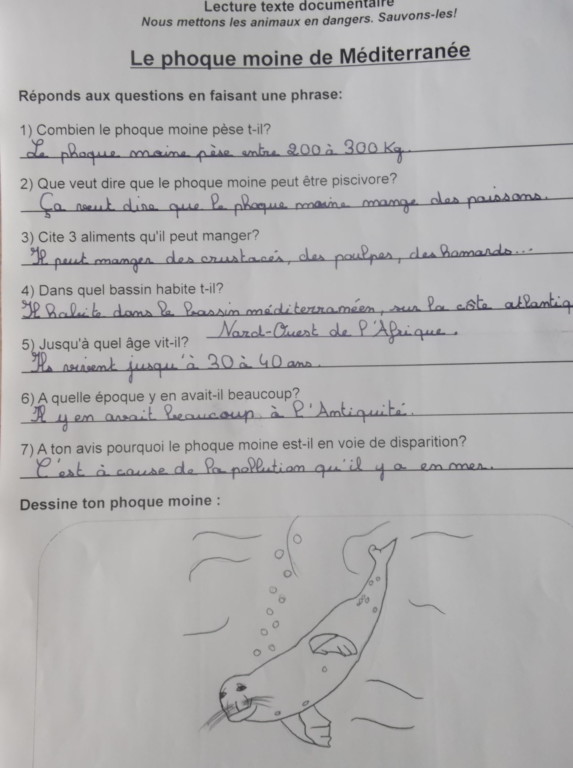 Lecture texte documentaire
Nous mettons les animaux en dangers. Sauvons-les!
Le phoque moine de Méditerranée
Réponds aux questions en faisant une phrase:
1) Combien le phoque moine pèse t-il?
Le phoque moine pèse entre 200 à 300 Kg.
2) Que veut dire que le phoque moine peut être piscivore?
Ça veut dire que le phoque moine mange des poissons.
3) Cite 3 aliments qu'il peut manger?
Il peut manger des crustacés, des poulpes, des homards...
4) Dans quel bassin habite t-il?
Il habite dans le bassin méditerranéen, sur la côte atlantiq
Nord-Ouest de l'Afrique.
5) Jusqu'à quel âge vit-il?
Ils vivent jusqu'à 30 à 40 ans.
6) A quelle époque y en avait-il beaucoup?
Il y en avait beaucoup à l'Antiquité.
7) A ton avis pourquoi le phoque moine est-il en voie de disparition?
C'est à cause de la pollution qu'il y a en mer.
Dessine ton phoque moine :